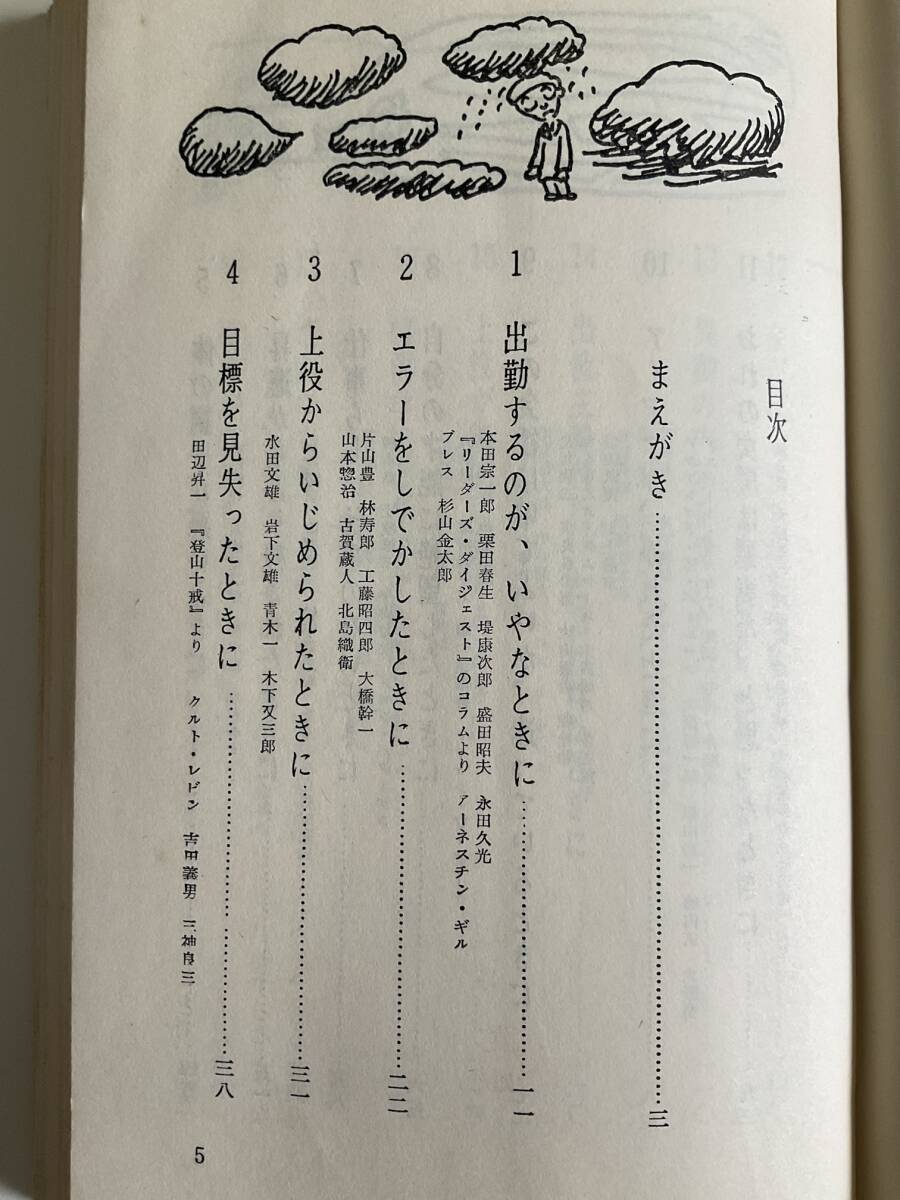 目次
まえがき……………………………………三
1 出勤するのが、いやなときに……………………一一
本田宗一郎 栗田春生 堤康次郎 盛田昭夫 永田久光
『リーダーズ・ダイジェスト』のコラムより アーネスチン・ギル
ブレス 杉山金太郎
2 エラーをしでかしたときに……………………二二
片山豊 林寿郎 工藤昭四郎 大橋幹一
山本惣治 古賀蔵人 北島織衛
3 上役からいじめられたときに……………………三一
水田文雄 岩下文雄 青木一 木下又三郎
4 目標を見失ったときに……………………三八
田辺昇一 『登山十戒』より クルト・レドン 吉田義男 三神良三
5